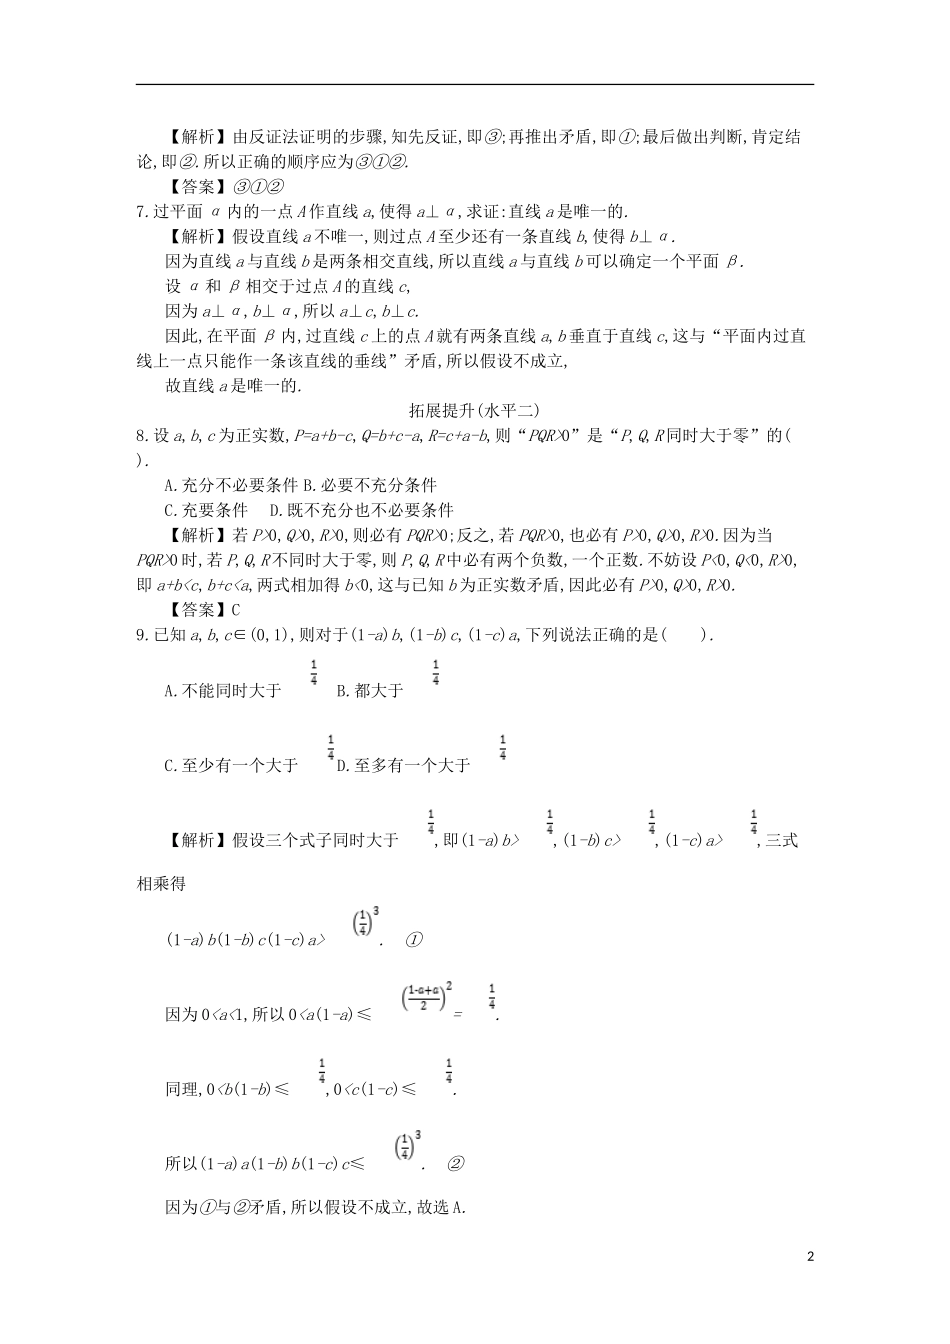 【解析】由反证法证明的步骤,知先反证,即③;再推出矛盾,即①;最后做出判断,肯定结
论,即②.所以正确的顺序应为③①②.
【答案】③①②
7.过平面α内的一点A作直线a,使得a⊥α,求证:直线a是唯一的.
【解析】假设直线a不唯一,则过点A至少还有一条直线b,使得b⊥α.
因为直线a与直线b是两条相交直线,所以直线a与直线b可以确定一个平面β.
设α和β相交于过点A的直线c,
因为a⊥α,b⊥α,所以a⊥c,b⊥c.
因此,在平面β内,过直线c上的点A就有两条直线a,b垂直于直线c,这与“平面内过直
线上一点只能作一条该直线的垂线”矛盾,所以假设不成立,
故直线a是唯一的.
拓展提升(水平二)
8.设a,b,c为正实数,P=a+b-c,Q=b+c-a,R=c+a-b,则“PQR>0”是“P,Q,R同时大于零”的(
).
A.充分不必要条件 B.必要不充分条件
C.充要条件 D.既不充分也不必要条件
【解析】若P>0,Q>0,R>0,则必有PQR>0;反之,若PQR>0,也必有P>0,Q>0,R>0.因为当
PQR>0时,若P,Q,R不同时大于零,则P,Q,R中必有两个负数,一个正数.不妨设P<0,Q<0,R>0,
即a+b<c,b+c<a,两式相加得b<0,这与已知b为正实数矛盾,因此必有P>0,Q>0,R>0.
【答案】C
9.已知a,b,c∈(0,1),则对于(1-a)b,(1-b)c,(1-c)a,下列说法正确的是( ).
A.不能同时大于1/4 B.都大于1/4
C.至少有一个大于1/4 D.至多有一个大于1/4
【解析】假设三个式子同时大于1/4,即(1-a)b>1/4,(1-b)c>1/4,(1-c)a>1/4,三式
相乘得
(1-a)b(1-b)c(1-c)a>(1/4)^3. ①
因为0<a<1,所以0<a(1-a)≤((1-a+a)/2)^2=1/4.
同理,0<b(1-b)≤1/4,0<c(1-c)≤1/4.
所以(1-a)a(1-b)b(1-c)c≤(1/4)^3. ②
因为①与②矛盾,所以假设不成立,故选A.
2